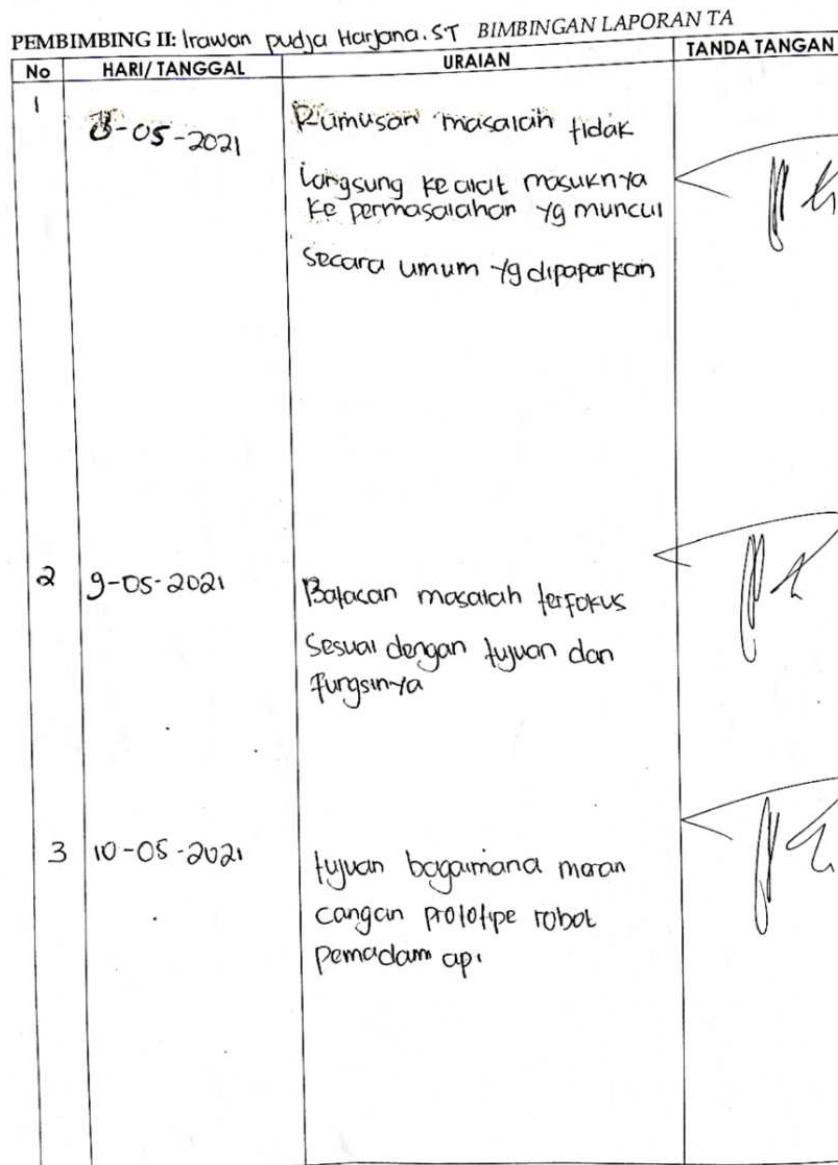 PEMBIMBING II: Irawan pudja Harjana.ST BIMBINGAN LAPORAN TA
No HARI/TANGGAL URAIAN TANDA TANGAN
1 8-05-2021 Rumusan masalah tidak
langsung ke alat masuknya
ke permasalahan yg muncul
secara umum yg dipaparkan
2 9-05-2021 Batasan masalah terfokus
Sesuai dengan tujuan dan
fungsinya
3 10-05-2021 tujuan bagaimana meran
cangan prototipe robot
pemadam api